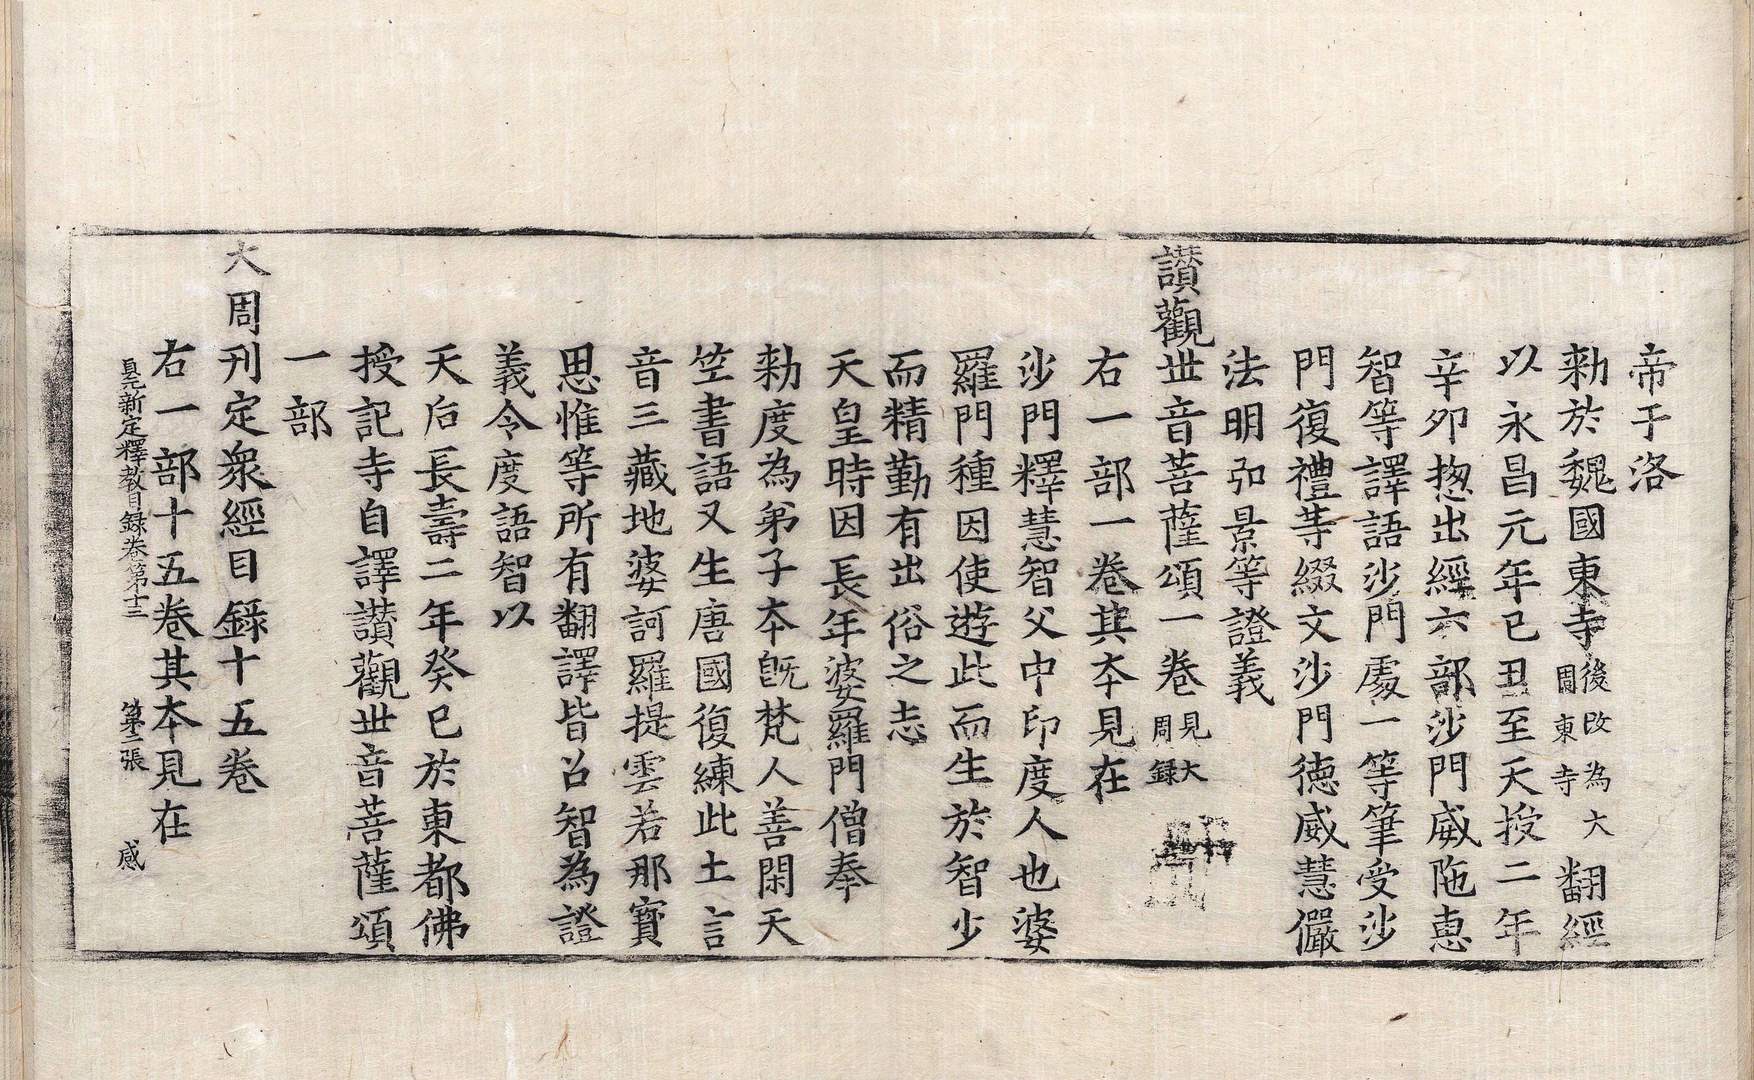 帝于洛
勑於魏國東寺後改為大周東寺翻經
以永昌元年已丑至天授二年
辛夘揔出經六部沙門威陁惠
智等譯語沙門處一等筆受沙
門復禮等綴文沙門德威慧儼
法明弘景等證義
讃觀世音菩薩頌一卷見大周録
右一部一卷其夲見在
沙門釋慧智父中印度人也婆
羅門種因使遊此而生於智少
而精勤有出俗之志
天皇時因長年婆羅門僧奉
勑度為弟子夲旣梵人善閑天
竺書語又生唐國復練此土言
音三藏地婆訶羅提雲若那寶
思惟等所有翻譯皆召智為證
義令度語智以
天后長壽二年癸巳於東都佛
授記寺自譯讃觀世音菩薩頌
一部
大周刊定衆經目録十五卷
右一部十五卷其夲見在
貞元新定釋教目録卷第十三 第二張 感